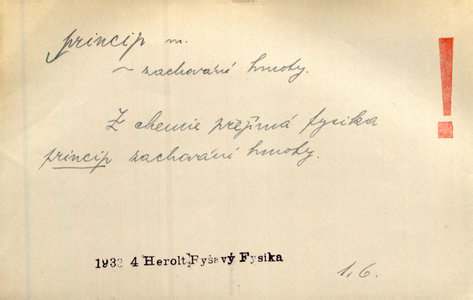 princip m.
~ zachování hmoty.
!
Z chemie přijímá fysika
princip zachování hmoty.
4 Herolt, Fyšavý Fysika
1,6.